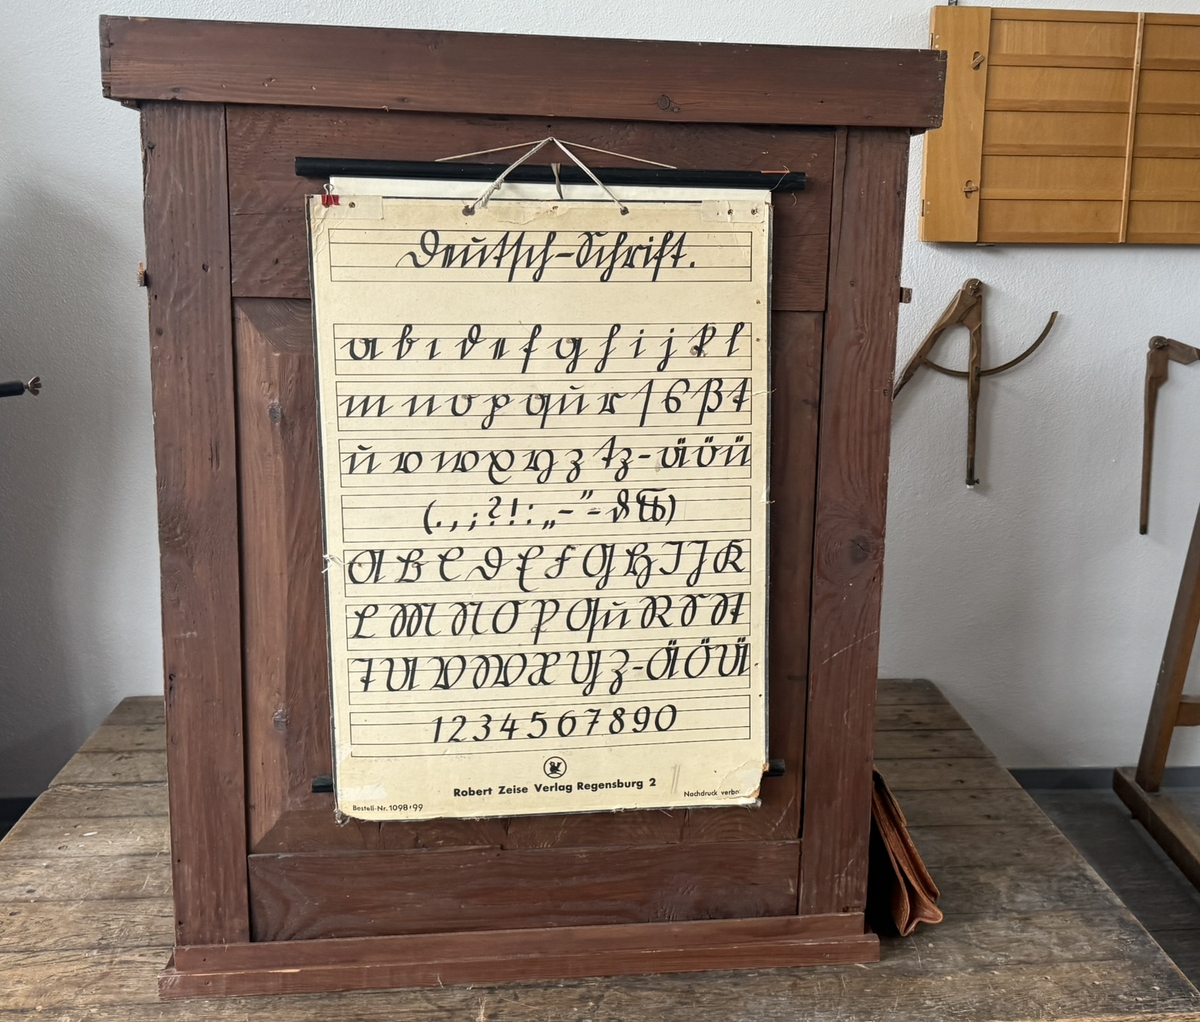 Deutsch-Schrift.
a b c d e f g h i j k l
m n o p qu r ſ s ß t
u v w x y z tz - ä ö ü
(. , ; ? ! : „ - " =
A B C D E F G H I J K
L M N O P Qu R S St
T U V W X Y Z - Ä Ö Ü
1 2 3 4 5 6 7 8 9 0
Robert Zeise Verlag Regensburg 2
Bestell-Nr. 1098+99
Nachdruck verbo